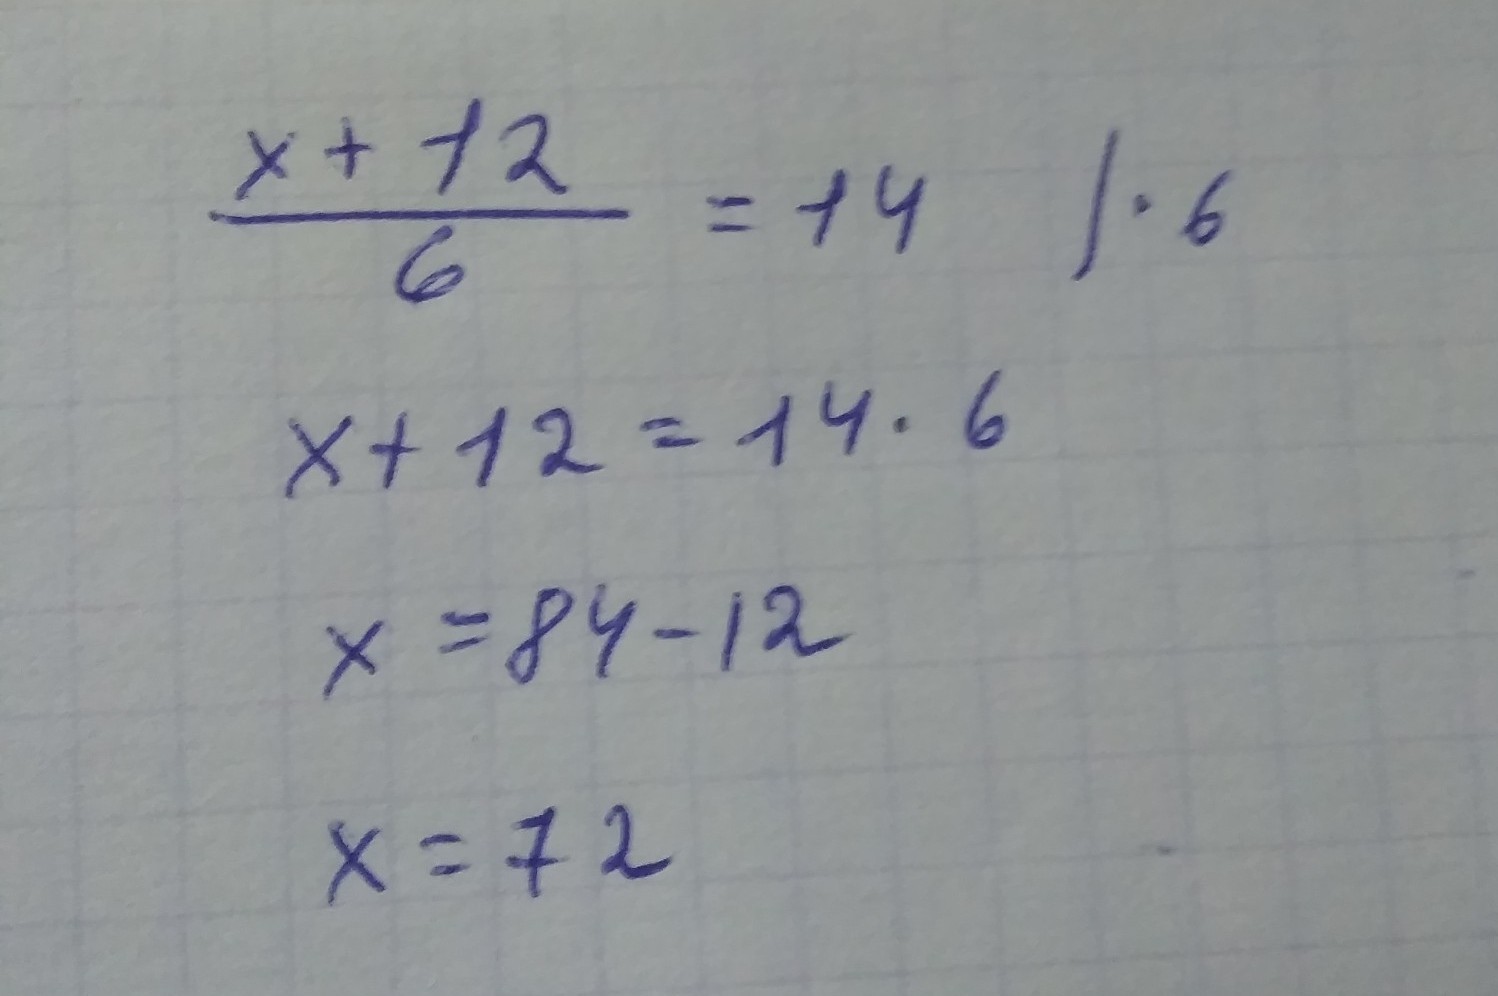 x + 12 / 6 = 14 | · 6
x + 12 = 14 · 6
x = 84 - 12
x = 72